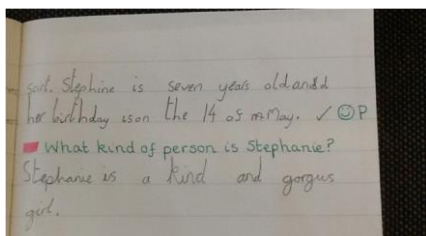 sort. Stephine is seven years old and
her birthday is on the 14 of May. ✓ ☺P
What kind of person is Stephanie?
Stephanie is a kind and gorgus
girl.